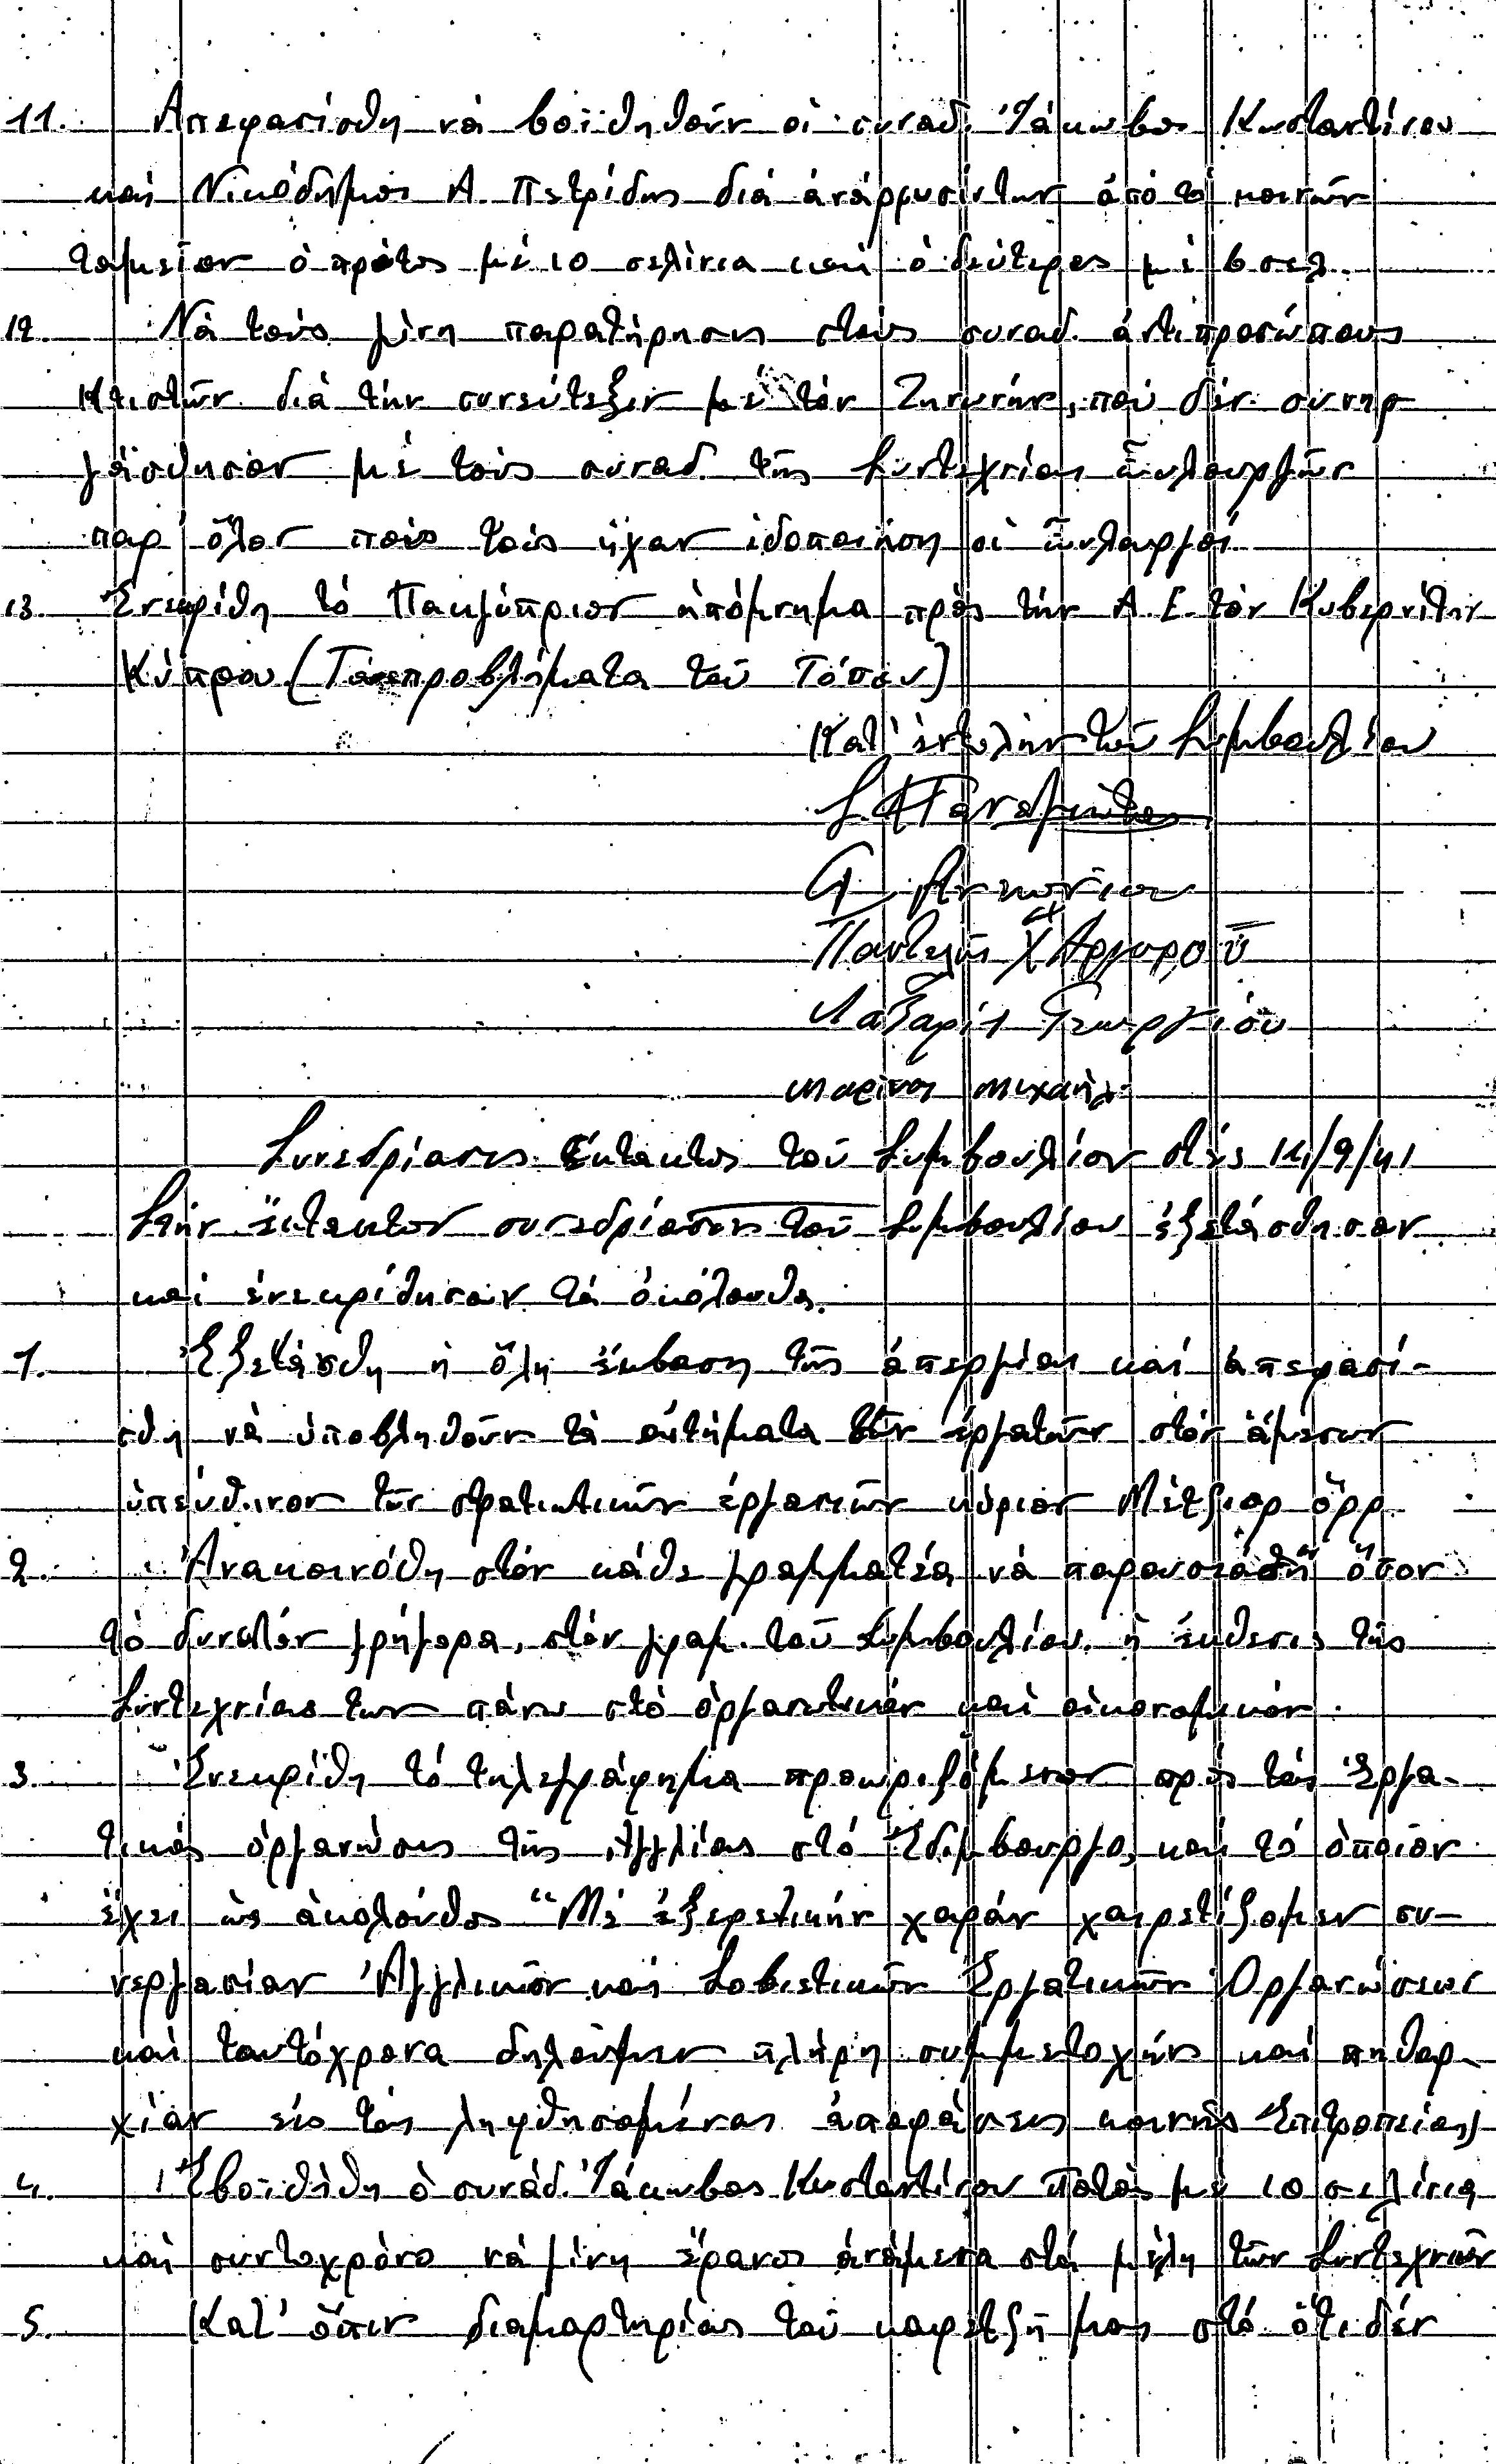 11. Απεφασίσθη νά βοϊθηθοῦν οἱ συναδ. Ἰάκωβος Κωσταντίνου
καί Νικόδημος Α. Πετρίδης διά ἀνάρρωσίν των ἀπό τό κοινόν
ταμεῖον ὁ πρῶτος μέ 10 σελίνια καί ὁ δεύτερος μέ 6 σελ.
12. Νά τούς γίνη παρατήρησης στούς συναδ. ἀντιπροσώπους
Κτιστῶν διά τήν συνέντεξιν μέ τόν Ζηνωνήν, πού δέν συνηρ
γάσθησαν μέ τούς συναδ. τῆς Συντεχνίας ξυλουργῶν
παρ' ὅλον πούς τούς ἠχαν ἰδοποιήση οἱ ξυλουργοί.
13. Ἐνεκρίθη τό Παγκύπριον ἠπόμνημα πρός τήν Α.Ε. τόν Κυβερνίτην
Κύπρου (Τά προβλήματα τοῦ Τόπου)
Κατ' ἐντολήν τοῦ Συμβουλίου
Αντωνίου
Παντελής Χ''Αργυροῦ
Λαζαρής Γεωργιόυ
Μαρίνος Μιχαήλ
Συνεδρίασις Ἔκτακτος τοῦ Συμβουλίου στές 14/9/41
Στήν ἔκτακτον συνεδρίασιν τοῦ Συμβουλίου ἐξετάσθησαν
καί ἐνεκρίθησαν τά ἀκόλουθα.
1. Ἐξετάσθη ἡ ὅλη ἔκβαση τῆς ἀπεργίας καί ἀπεφασί-
σθη νά ὑποβληθοῦν τά αἰτήματα τῶν ἐργατῶν στόν ἀμεσων
ὑπεύθινον τῶν στρατιωτικῶν ἐργασιῶν κύριον Μέτζιορ ὄρρ.
2. Ἀνακοινόθη στόν κάθε γραμματέα νά παρουσιάση ὅσον
τό δυνατόν γρήγορα, στόν γραμ. τοῦ Συμβουλίου ἡ ἔκθεσις τῆς
Συντεχνίας των πάνω στό ὀργανωτικόν καί οἰκονομικόν.
3. Ἐνεκρίθη τό τηλεγράφημα προωριζόμενον πρός τάς Ἐργα-
τικάς ὀργανώσις τῆς Ἀγγλίας στό Ἐδιμβούργο, καί τό ὁποῖον
ἔχει ὡς ἀκολούθος "Μέ ἐξερετικήν χαράν χαιρετίζομεν συ-
νεργασίαν Ἀγγλικῶν καί Σοβιετικῶν Ἐργατικῶν Ὀργανώσεων
καί ταυτόχρονα δηλοῦμεν πλήρη συμμετοχήν καί πηθαρ-
χίαν εἰς τάς ληφθησομένας ἀποφάσεις κοινῆς Ἐπιτροπείας)
4. Ἐβοϊθήθη ὁ συνάδ. Ἰάκωβος Κωσταντίνου Ποτός μέ 10 σελίνια
καί συντοχρόνο νά γίνη ἔρανος ἀνάμεσα στά μέλη τῶν Συντεχνιῶν
5. Κατ' ὄπιν διαμαρτηρίας τοῦ καφετζῆ μας στό ὅτι δέν